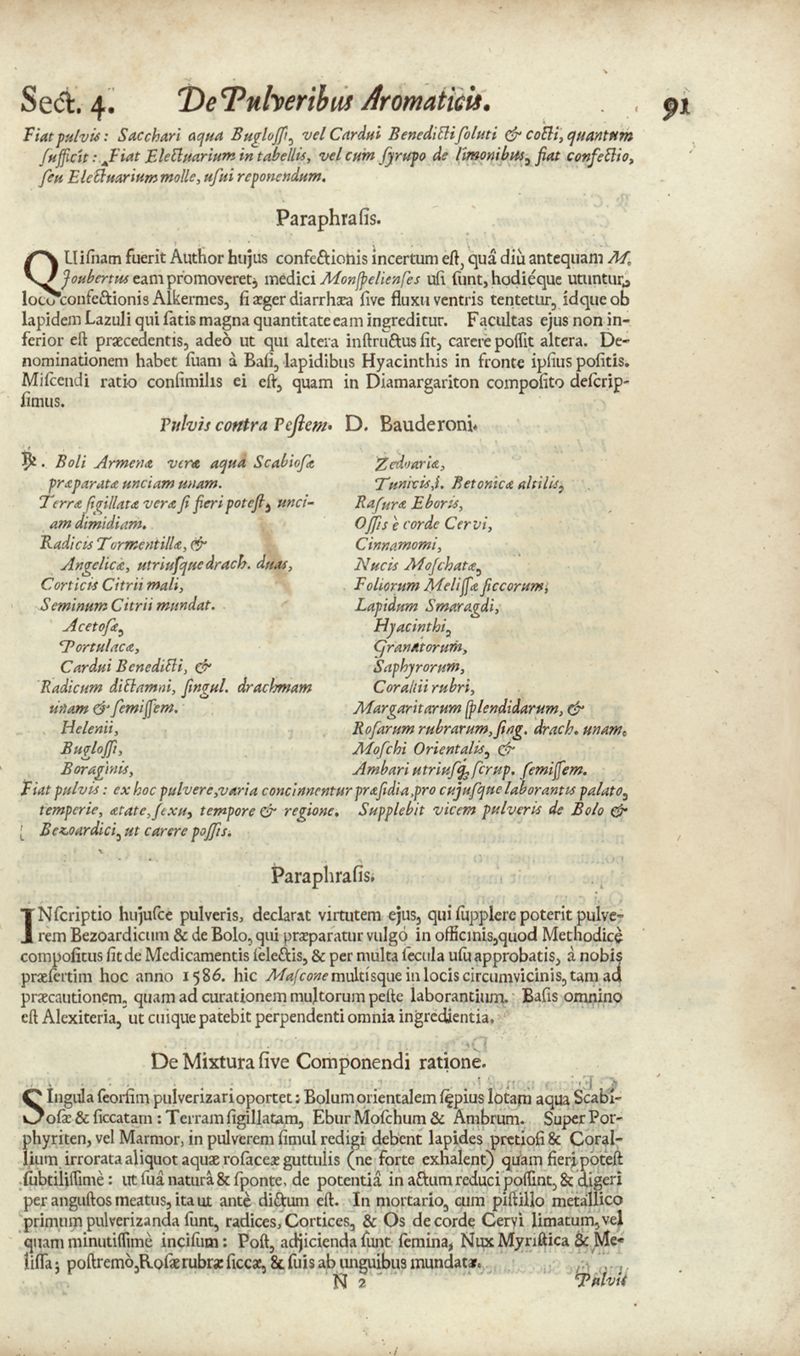 Sect. 4. De Pulveribus Aromaticis. 91
Fiat pulvis: Sacchari aqua Buglossi, vel Cardui Benedicti soluti & cocti, quantum
sufficit: Fiat Electuarium in tabellis, vel cum syrupo de limonibus, fiat confectio,
seu Electuarium molle, usui reponendum.
Paraphrasis.
QUisnam fuerit Author hujus confectionis incertum est, quâ diù antequam M.
Joubertus eam promoveret, medici Monspelienses usi sunt, hodiéque utuntur,
loco confectionis Alkermes, si æger diarrhæa sive fluxu ventris tentetur, idque ob
lapidem Lazuli qui satis magna quantitate eam ingreditur. Facultas ejus non in-
ferior est præcedentis, adeò ut qui altera instructus sit, carere possit altera. De-
nominationem habet suam à Basi, lapidibus Hyacinthis in fronte ipsius positis.
Miscendi ratio consimilis ei est, quam in Diamargariton composito descrip-
simus.
Pulvis contra Pestem. D. Bauderoni.
℞. Boli Armenæ veræ aquâ Scabiosæ
præparatæ unciam unam.
Terræ sigillatæ veræ si fieri potest, unci-
am dimidiam.
Radicis Tormentillæ, &
Angelicæ, utriusque drach. duas,
Corticis Citrii mali,
Seminum Citrii mundat.
Acetosæ,
Portulacæ,
Cardui Benedicti, &
Radicum dictamni, singul. drachmam
unam & semissem.
Helenii,
Buglossi,
Boraginis,
Zedoariæ,
Tunicis,i. Betonicæ altilis,
Rasuræ Eboris,
Ossis è corde Cervi,
Cinnamomi,
Nucis Moschatæ,
Foliorum Melissæ siccorum,
Lapidum Smaragdi,
Hyacinthi,
Granatorum,
Saphyrorum,
Corallii rubri,
Margaritarum splendidarum, &
Rosarum rubrarum, sing. drach. unam.
Moschi Orientalis, &
Ambari utriusq; scrup. semissem.
Fiat pulvis: ex hoc pulvere, varia concinnentur præsidia, pro cujusque laborantis palato,
temperie, ætate, sexu, tempore & regione. Supplebit vicem pulveris de Bolo &
Bezoardici, ut carere possis.
Paraphrasis.
INscriptio hujusce pulveris, declarat virtutem ejus, qui supplere poterit pulve-
rem Bezoardicum & de Bolo, qui præparatur vulgò in officinis, quod Methodicè
compositus sit de Medicamentis selectis, & per multa secula usu approbatis, à nobis
præsertim hoc anno 1586. hic Mascone multisque in locis circumvicinis, tam ad
præcautionem, quam ad curationem multorum peste laborantium. Basis omnino
est Alexiteria, ut cuique patebit perpendenti omnia ingredientia.
De Mixtura sive Componendi ratione.
SIngula seorsim pulverizari oportet: Bolum orientalem sępius lotam aqua Scabi-
osæ & siccatam: Terram sigillatam, Ebur Moschum & Ambrum. Super Por-
phyriten, vel Marmor, in pulverem simul redigi debent lapides pretiosi & Coral-
lium irrorata aliquot aquæ rosaceæ guttulis (ne forte exhalent) quam fieri potest
subtilissimè: ut suâ naturâ & sponte, de potentiâ in actum reduci possint, & digeri
per angustos meatus, ita ut antè dictum est. In mortario, cum pistillo metallico
primum pulverizanda sunt, radices, Cortices, & Os de corde Cervi limatum, vel
quam minutissimè incisum: Post, adjicienda sunt semina, Nux Myristica & Me-
lissa; postremò, Rosæ rubræ siccæ, & suis ab unguibus mundatæ.
N 2 Pulvis